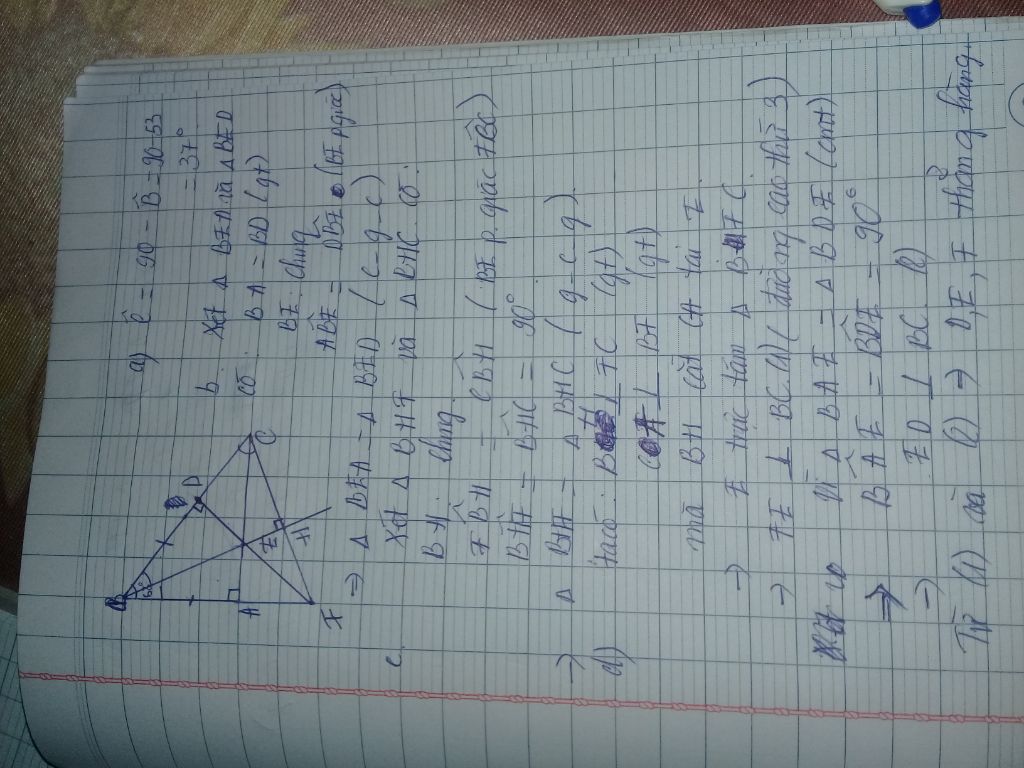 B
53°
D
A
E
C
H
F
a) Ĉ = 90 - B̂ = 90 - 53
= 37°
b. Xét Δ BEA và Δ BED
có: BA = BD (gt)
BE: chung
AB̂E = DB̂E (BE p.giác)
⇒ Δ BEA = Δ BED (c-g-c)
c. Xét Δ BHF và Δ BHC có:
BH: chung
FB̂H = CB̂H (BE p.giác FBC)
BĤF = BĤC = 90°
⇒ Δ BHF = Δ BHC (g-c-g)
d) Ta có: BH ⊥ FC (gt)
CA ⊥ BF (gt)
mà BH cắt CA tại E
⇒ E trực tâm Δ BFC.
⇒ FE ⊥ BC (1) (đường cao thứ 3)
Vì Δ BAE = Δ BDE (cmt)
⇒ BÂE = BD̂E = 90°
⇒ ED ⊥ BC (2)
Từ (1) và (2) ⇒ D, E, F thẳng hàng.